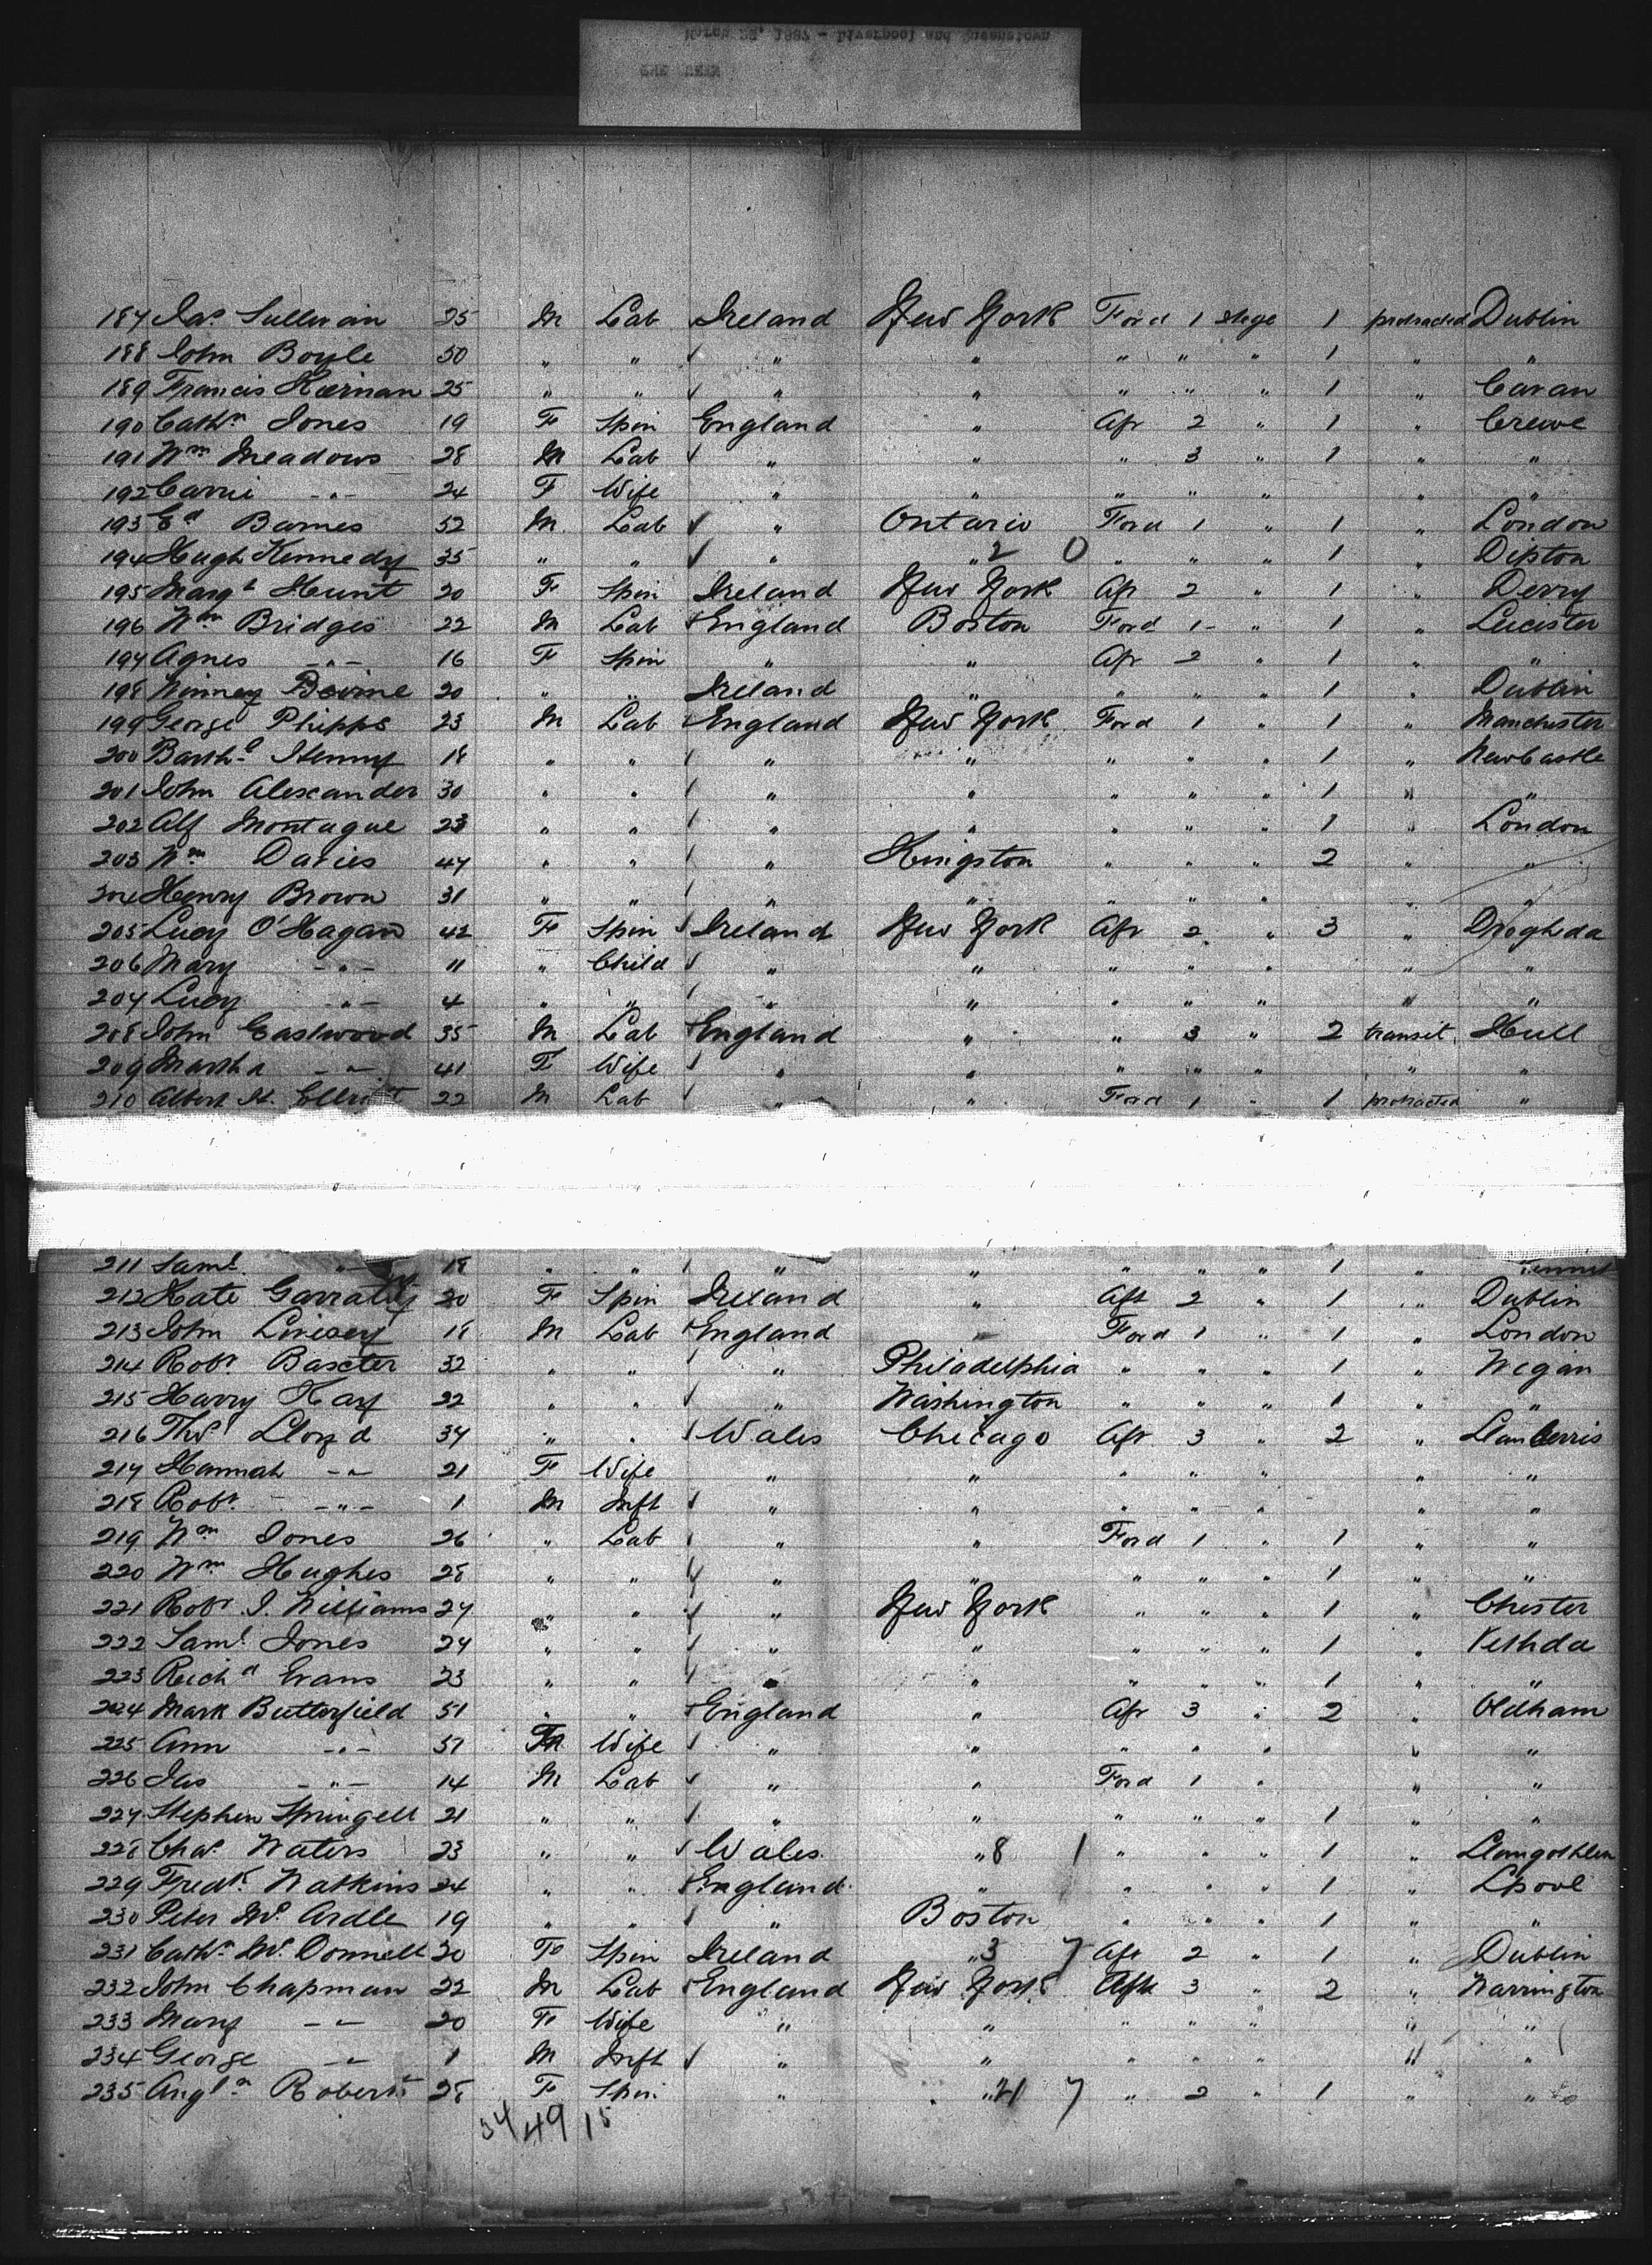 March 28, 1887 - Liverpool and Queenstown
187 Jas Sullivan 25 M Lab Ireland New York Ford 1 stage 1 protracted Dublin
188 John Boyle 50 " " " " " " " 1 " "
189 Francis Kiernan 25 " " " " " " " 1 " Cavan
190 Cathn Jones 19 F Spin England " Afr 2 " 1 " Crewe
191 Wm Meadows 28 M Lab " " " 3 " 1 " "
192 Carrie -"- 24 F Wife " " " " " " "
193 Ed Barnes 52 M Lab " Ontario Ford 1 " 1 " London
194 Hugh Kennedy 35 " " " " 2 0 " " " 1 " Dipton
195 Margt Hunt 20 F Spin Ireland New York Afr 2 " 1 " Derry
196 Wm Bridges 22 M Lab England Boston Ford 1 " 1 " Leicester
197 Agnes -"- 16 F Spin " " Afr 2 " 1 " "
198 Winney Bovine 20 " " Ireland " " " " 1 " Dublin
199 George Phipps 23 M Lab England New York Ford 1 " 1 " Manchester
200 Bartho Henny 18 " " " " " " " 1 " Newcastle
201 John Alexander 30 " " " " " " " 1 " "
202 Alf Montague 23 " " " " " " " 1 " London
203 Wm Davies 47 " " " Kingston " " " 2 " "
204 Henry Brown 31 " " " " " " " " "
205 Lucy O'Hagan 42 F Spin Ireland New York Afr 2 " 3 " Drogheda
206 Mary -"- 11 " Child " " " " " " "
207 Lucy -"- 4 " " " " " " " " "
208 John Eastwood 35 M Lab England " " 3 " 2 transit Hull
209 Martha -"- 41 F Wife " " " " " " "
210 Albert H. Elliott 22 M Lab " " Ford 1 " 1 protracted "
211 Saml -"- 18 " " " " " " " 1 "
212 Kate Garratty 20 F Spin Ireland " Aft 2 " 1 " Dublin
213 John Linsey 18 M Lab England " Ford 1 " 1 " London
214 Robt Baxter 32 " " " Philadelphia " " " 1 " Wigan
215 Harry Kay 22 " " " Washington " " " 1 " "
216 Thos Lloyd 34 " " Wales Chicago Aft 3 " 2 " Llanberris
217 Hannah -"- 21 F Wife " " " " " " "
218 Robt -"- 1 M Inft " " " " " " "
219 Wm Jones 26 " Lab " " Ford 1 " 1 " "
220 Wm Hughes 28 " " " " " " " 1 " "
221 Robt J. Williams 27 " " " New York " " " 1 " Chester
222 Saml Jones 24 " " " " " " " 1 "
223 Richd Evans 23 " " " " " " " 1 " "
224 Mark Butterfield 51 " " England " Afr 3 " 2 " Oldham
225 Ann -"- 51 F Wife " " " " " " "
226 Jas -"- 14 M Lab " " Ford 1 " " "
227 Stephen Springett 21 " " " " " " " 1 " "
228 Chas Waters 23 " " Wales " 8 1 " " " 1 " Llangothlen
229 Fredk Watkins 24 " " England " " " " 1 " Lpool
230 Peter McArdle 19 " " " Boston " " " 1 " "
231 Cathn McDonnell 20 F Spin Ireland " 3 7 Aft 2 " 1 " Dublin
232 John Chapman 22 M Lab England New York Aft 3 " 2 " Warrington
233 Mary -"- 20 F Wife " " " " " " "
234 George -"- 1 M Inft " " " " " " "
235 Angln Roberts 28 F Spin " " 21 7 " 2 " 1 " "
34 49 15